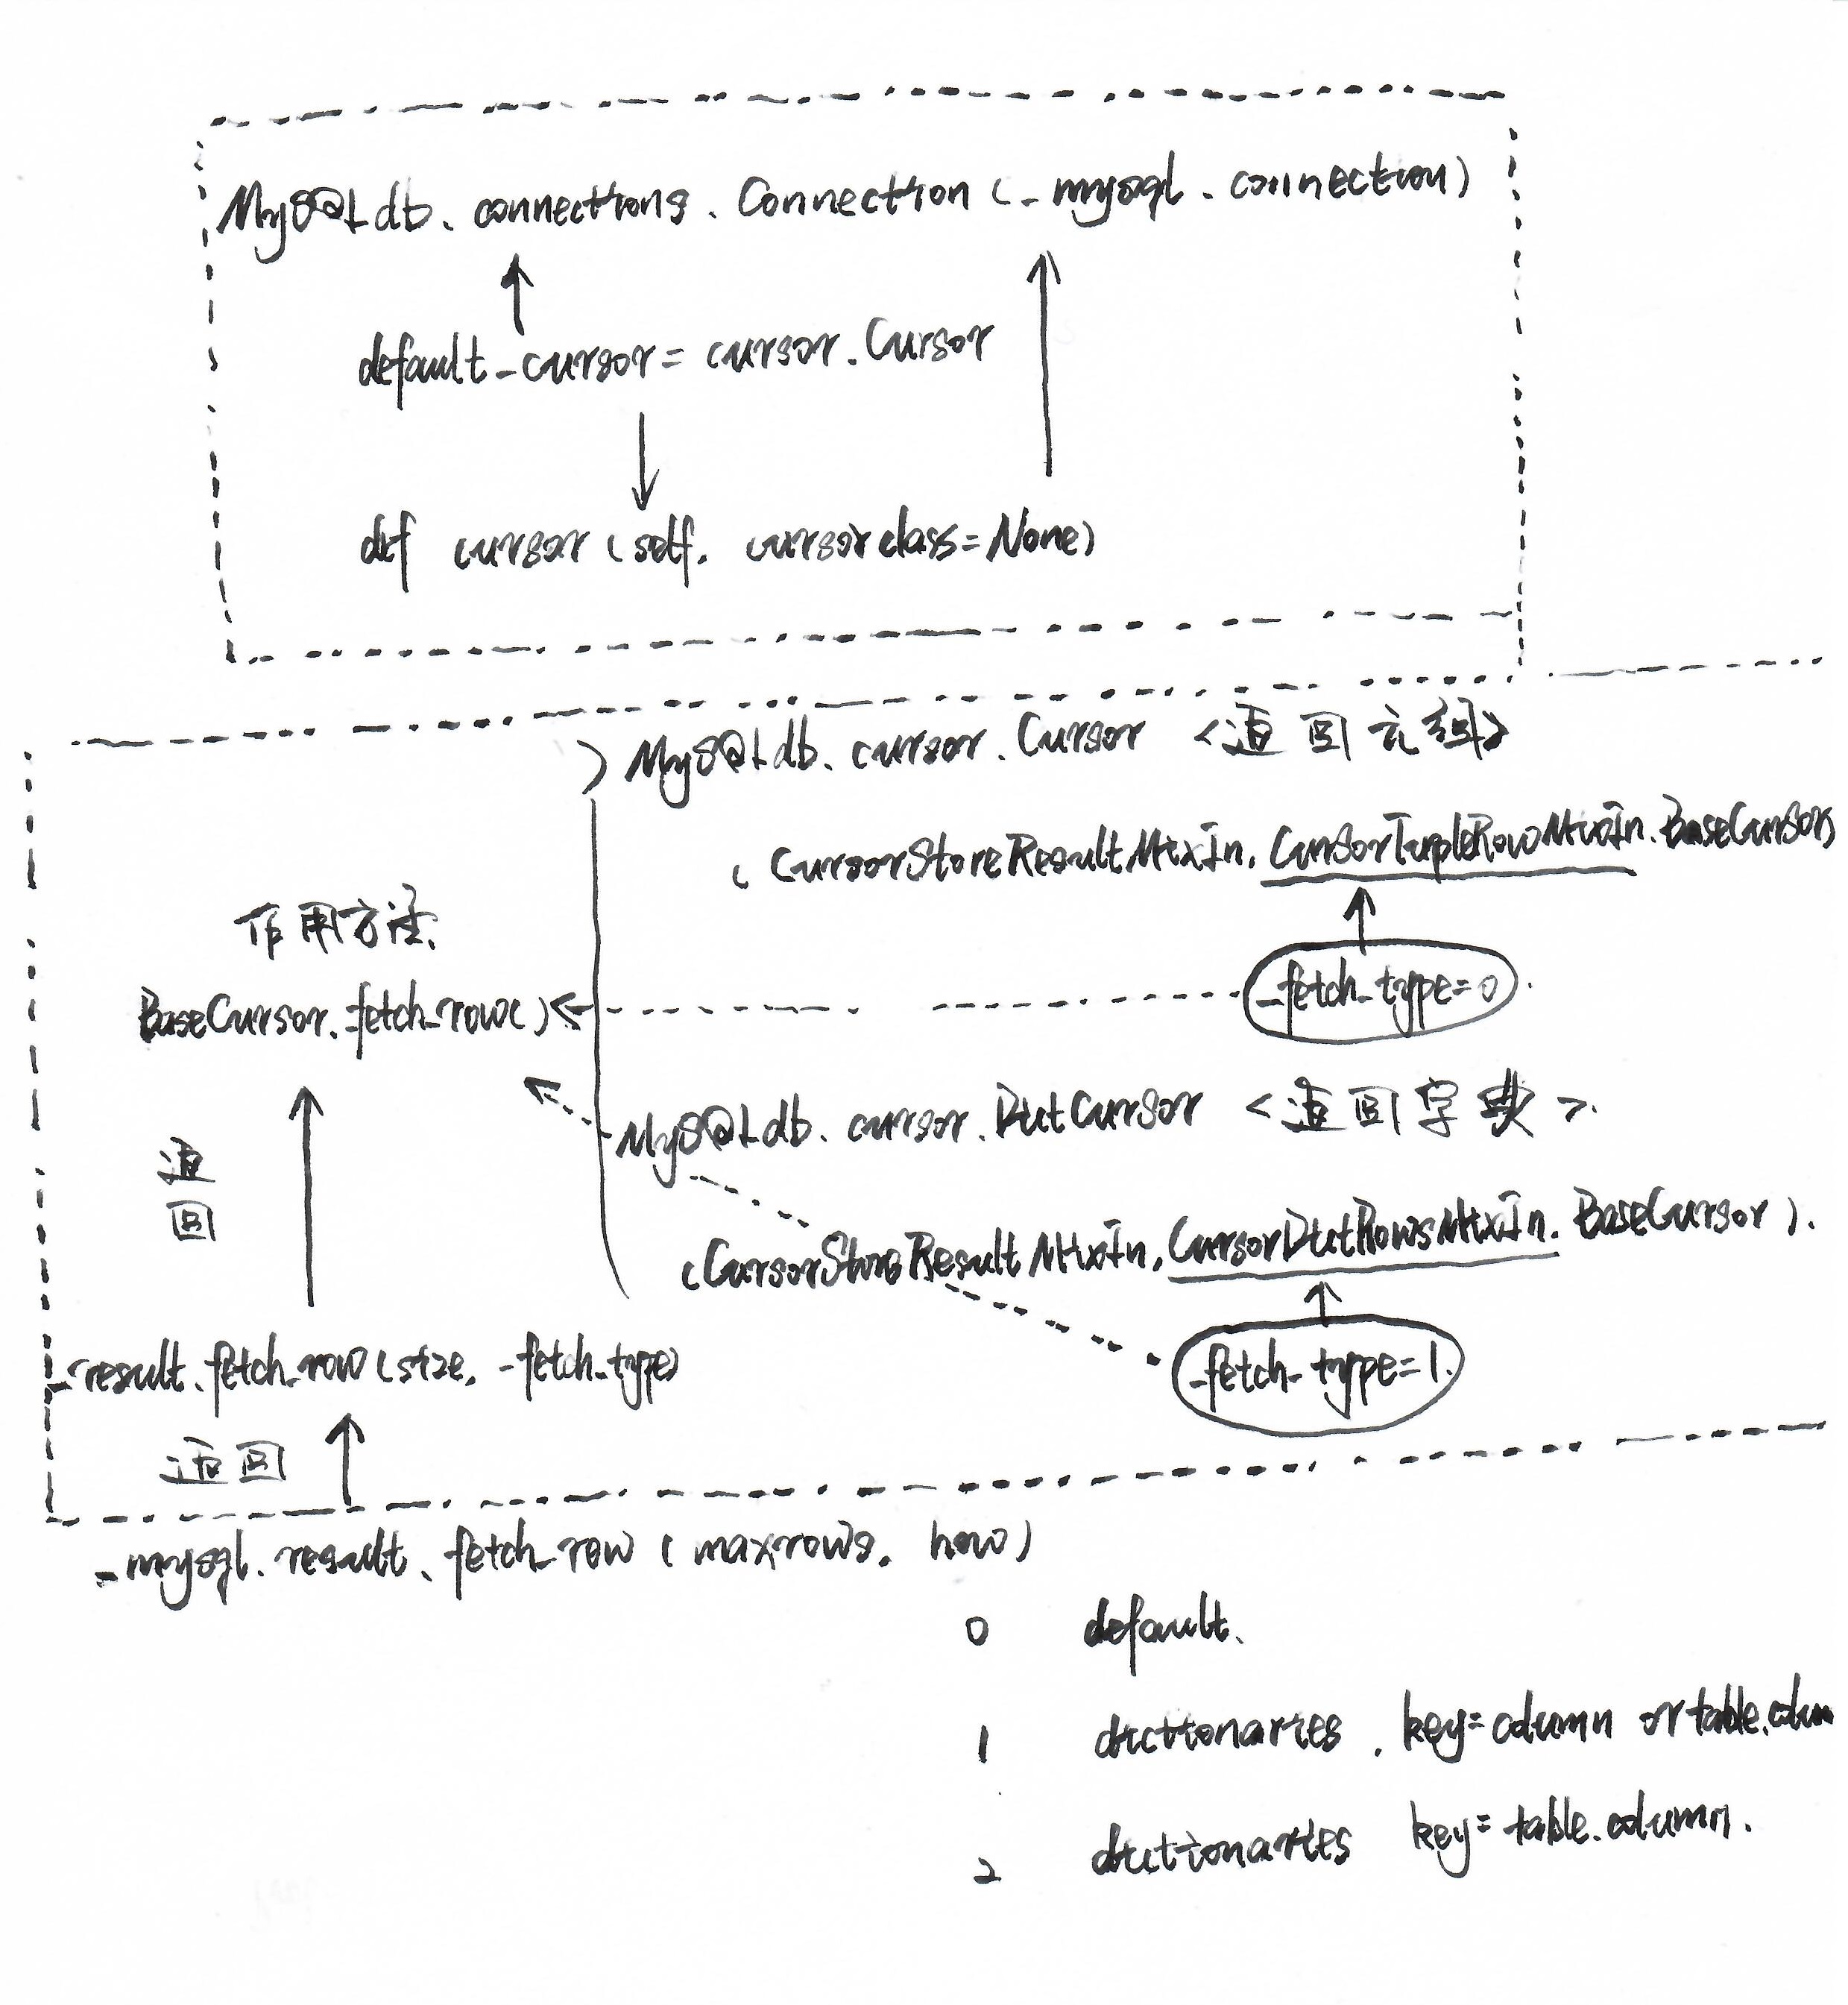 MySQLdb. connections. Connection (_mysql. connection)
default_cursor = cursor.Cursor
def cursor (self, cursorclass=None)
MySQLdb. cursor. Cursor <返回元组>
(CursorStoreResultMixIn, CursorTupleRowMixIn. BaseCursor)
_fetch_type=0
作用方法
BaseCursor._fetch_row()
MySQLdb. cursor. DictCursor <返回字典>
(CursorStoreResultMixIn, CursorDictRowsMixIn. BaseCursor).
_fetch_type=1.
返回
_result.fetch_row(size, _fetch_type)
返回
_mysql. result. fetch_row (maxrows, how)
0 default.
1 dictionaries. key=column or table.colum
2 dictionaries key=table.column.